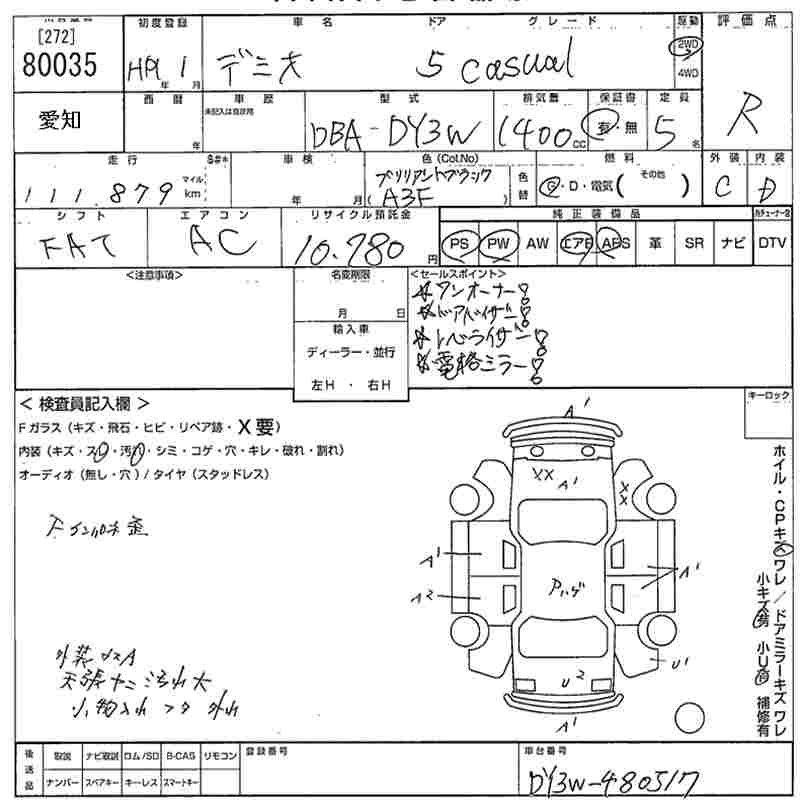 [272]
80035
初度登録
H19 1
年 月
車名 ドア グレード
デミオ 5 casual
駆動
2WD
4WD
評価点
R
愛知
西暦
年
車歴
未記入は自家用
型式
DBA-DY3W
排気量
1400 cc
保証書
有・無
定員
5 名
走行
111,879
マイル
km
S#*
車検
年 月
色(Col.No)
ブリリアントブラック
(A3F )
色替
燃料
G・D・電気( その他 )
外装
C
内装
D
シフト
FAT
エアコン
AC
リサイクル預託金
10,780 円
純正装備品
PS PW AW エアB ABS 革 SR ナビ DTV
<注意事項>
名変期限
月 日
輸入車
ディーラー・並行
左H ・ 右H
<セールスポイント>
☆ワンオーナー!
☆ドアバイザー!
☆レベライザー!
☆電格ミラー!
< 検査員記入欄 >
Fガラス(キズ・飛石・ヒビ・リペア跡・X要)
内装(キズ・スレ・汚れ・シミ・コゲ・穴・キレ・破れ・割れ)
オーディオ(無し・穴)/タイヤ(スタッドレス)
キーロック
ホイル・CPキズ ワレ / ドアミラーキズ ワレ
小キズ有 小U有 補修有
A1
XX
A1
XX
A1
A2
A1
Pハゲ
U2
U1
A1
外装 キズA
天張ヤニ汚れ大
小物入れ フタ 外れ
後送品
取説 ナビ取説 ロム/SD B-CAS リモコン
ナンバー スペアキー キーレス スマートキー
登録番号
車台番号
DY3W-480517